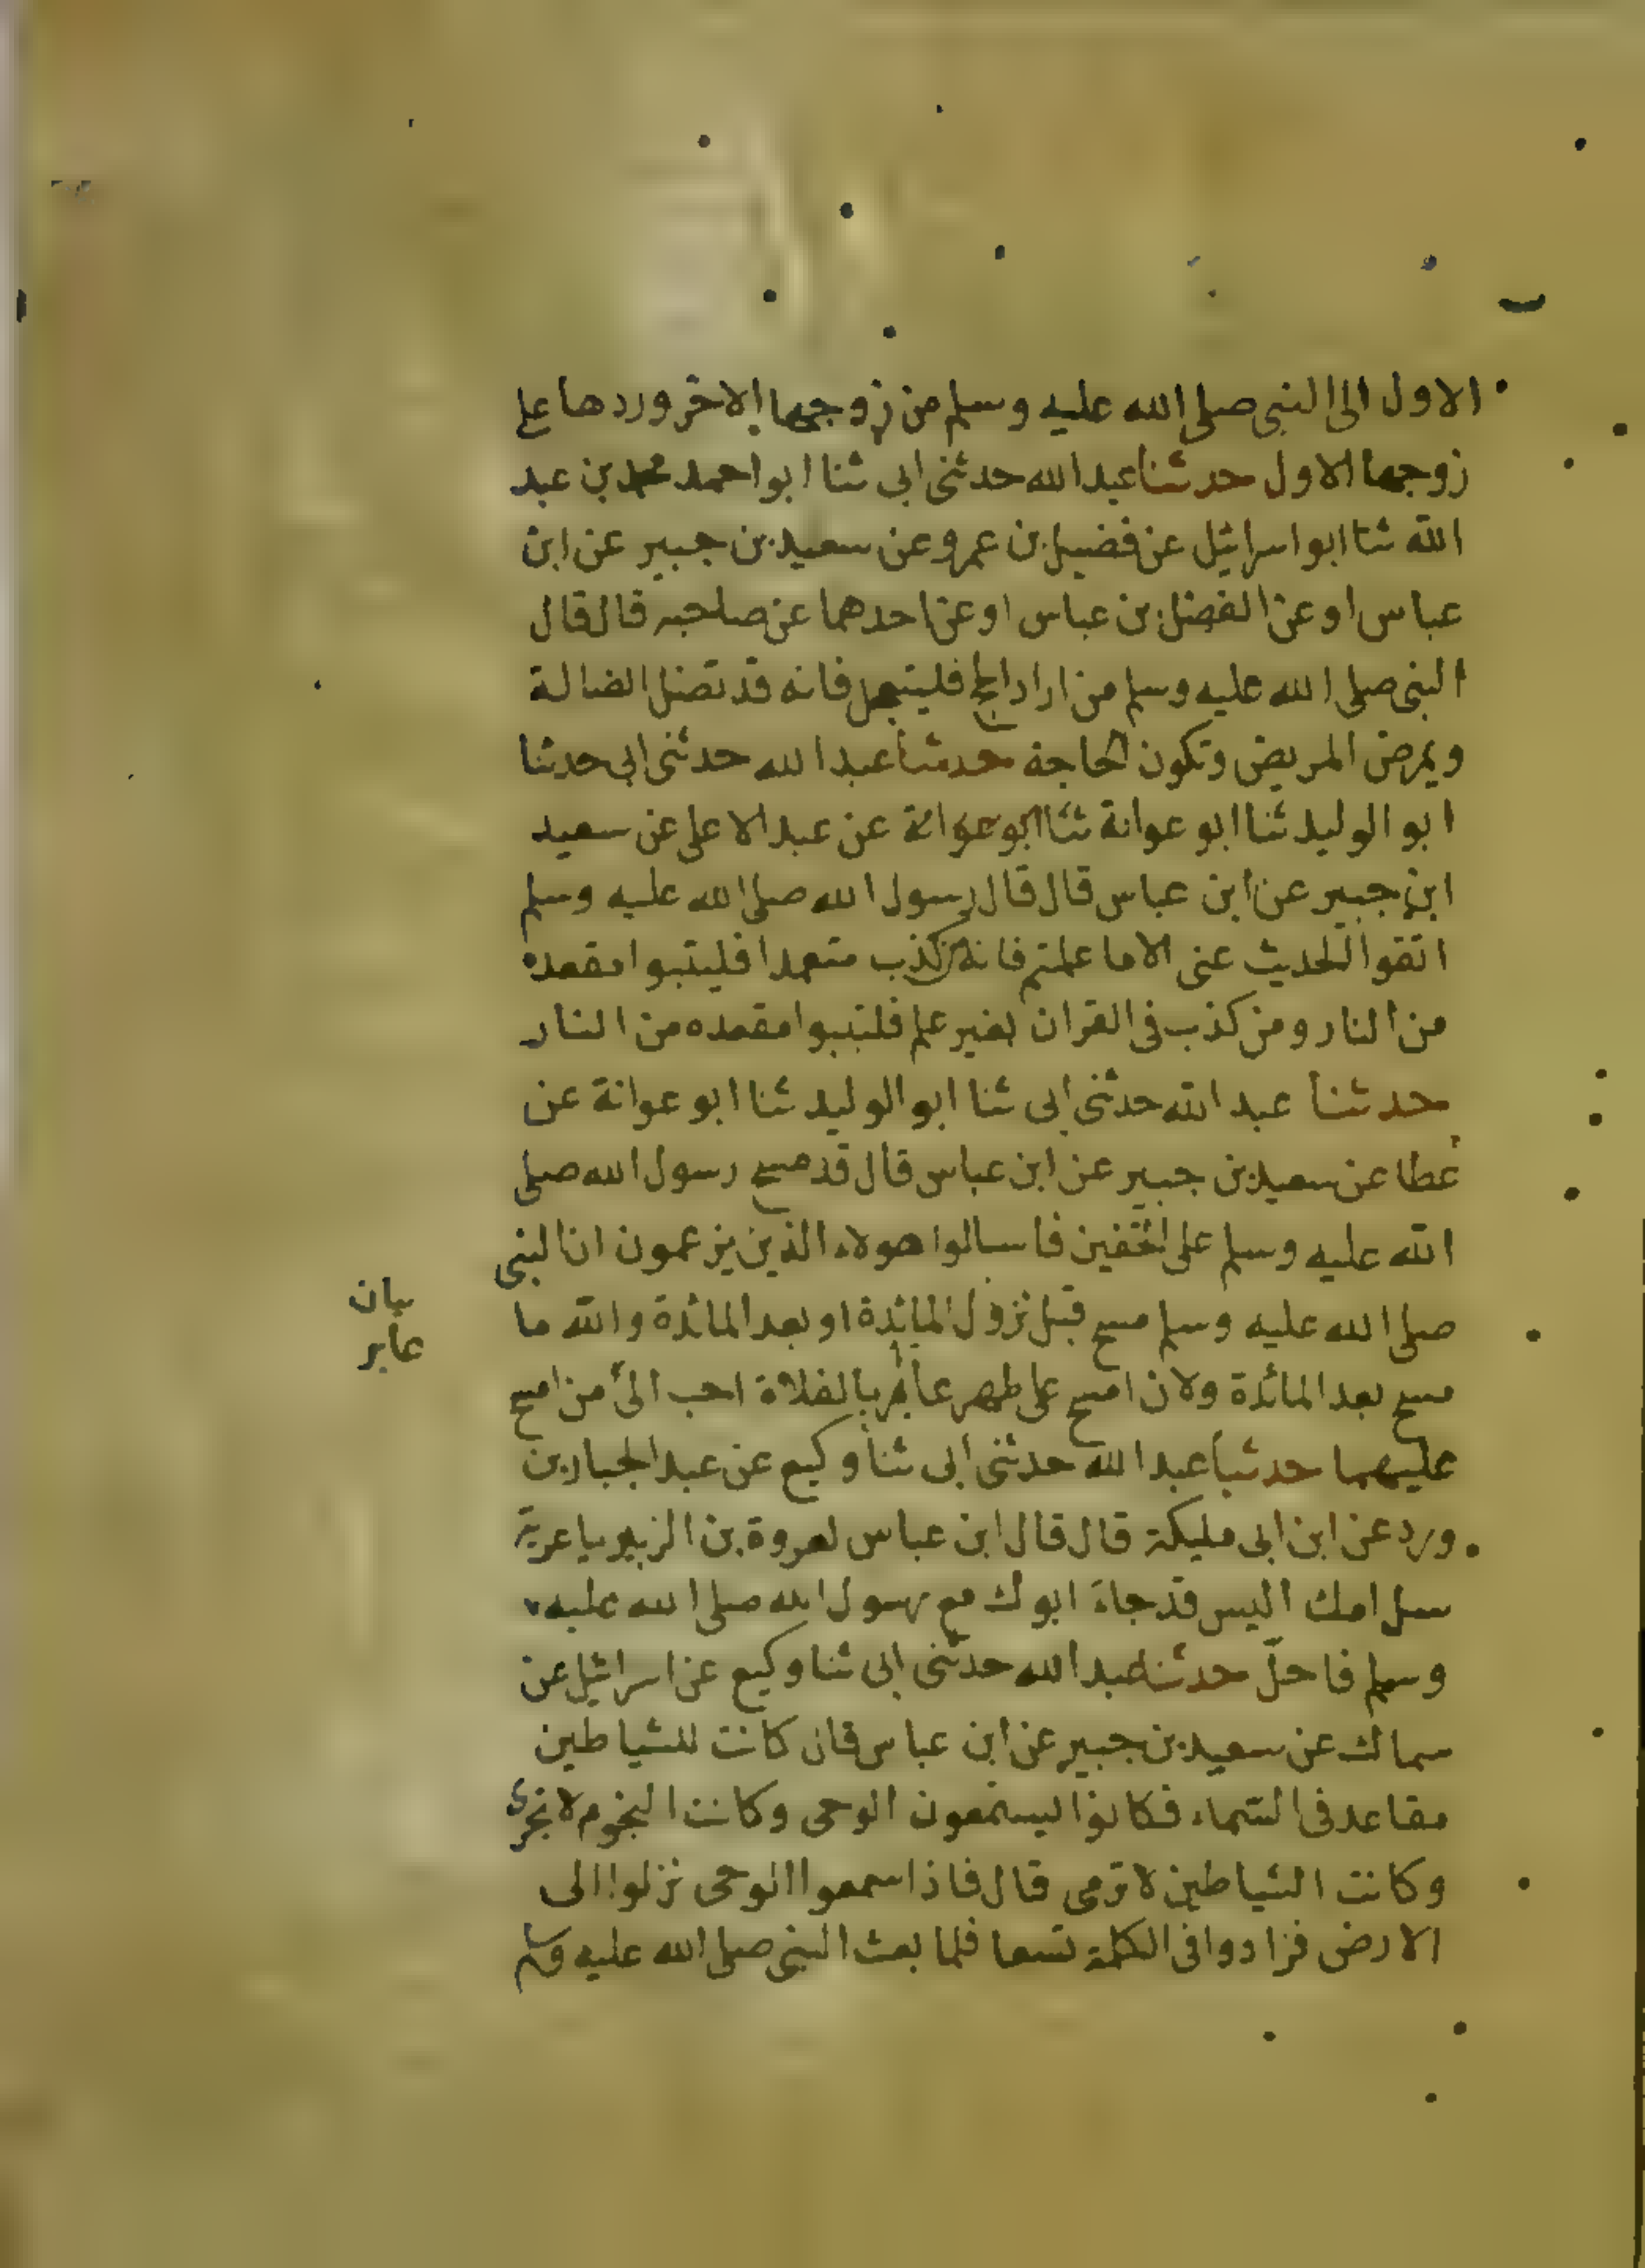 الاول الى النبى صلى الله عليه وسلم من زوجها الاخر وردها على
زوجها الاول حدثنا عبد الله حدثنى ابى ثنا ابو احمد محمد بن عبد
الله ثنا ابو اسرائيل عن فضيل بن عمرو عن سعيد بن جبير عن ابن
عباس او عن الفضل بن عباس او عن احدهما عن صاحبه قال قال
النبى صلى الله عليه وسلم من اراد الحج فليتعجل فانه قد تضل الضالة
ويمرض المريض وتكون الحاجة حدثنا عبد الله حدثنى ابى حدثنا
ابو الوليد ثنا ابو عوانة ثنا ابو عوانة عن عبد الاعلى عن سعيد
ابن جبير عن ابن عباس قال قال رسول الله صلى الله عليه وسلم
اتقوا الحديث عنى الا ما علمتم فانه من كذب متعمدا فليتبوا مقعده
من النار ومن كذب فى القران بغير علم فلتبوا مقعده من النار
حدثنا عبد الله حدثنى ابى ثنا ابو الوليد ثنا ابو عوانة عن
عطا عن سعيد بن جبير عن ابن عباس قال قد مسح رسول الله صلى
الله عليه وسلم على الخفين فاسالوا هولاء الذين يزعمون ان النبى
صلى الله عليه وسلم مسح قبل نزول المايدة او بعد المائدة والله ما
مسح بعد المائدة ولان امسح على ظهر عابر بالفلاة احب الىّ من امسح
عليهما حدثنا عبد الله حدثنى ابى ثنا وكيع عن عبد الجبار بن
ورد عن ابن ابى مليكة قال قال ابن عباس لعروة بن الزبير يا عرية
سل امك اليس قد جاء ابوك مع رسول الله صلى الله عليه
وسلم فاحلّ حدثنا عبد الله حدثنى ابى ثنا وكيع عن اسرائيل عن
سماك عن سعيد بن جبير عن ابن عباس قال كانت للشياطين
مقاعد فى السماء فكانوا يستمعون الوحى وكانت النجوم لا تجرى
وكانت الشياطين لا ترمى قال فاذا سمعوا الوحى نزلوا الى
الارض فزادوا فى الكلمة تسعا فلما بعث النبى صلى الله عليه وسلم
بيان
عابر